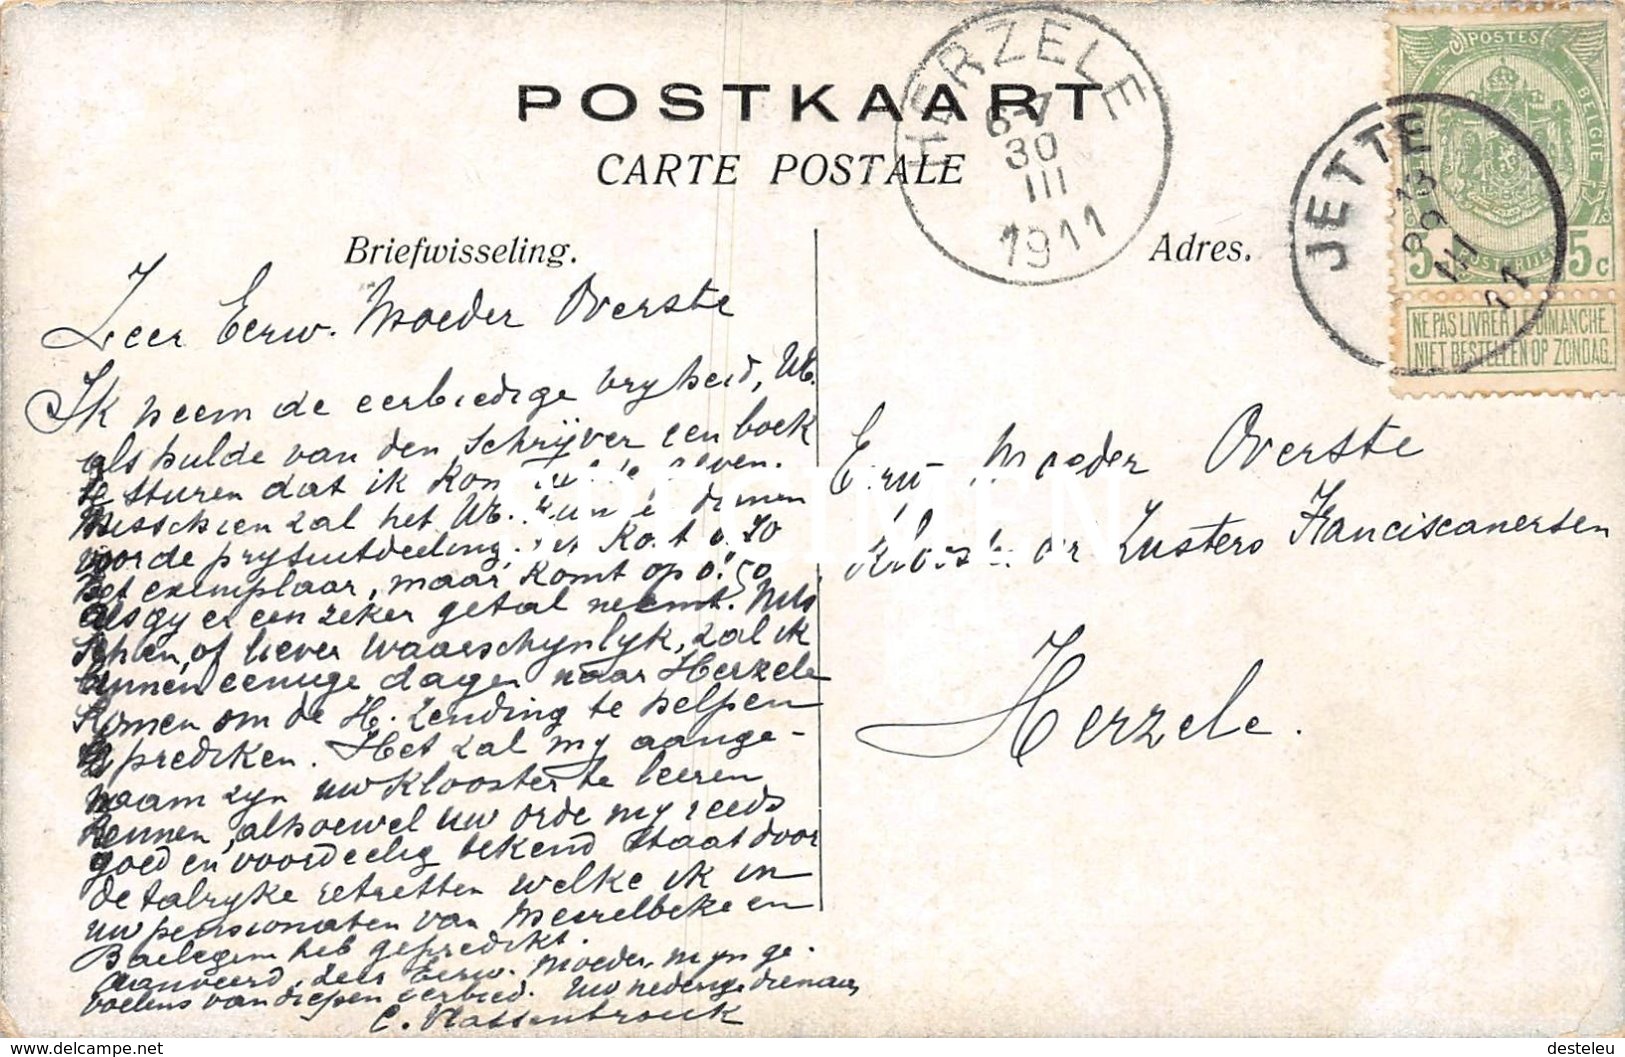 POSTKAART
CARTE POSTALE
HERZELE
6-7
30
III
1911
JETTE
13
29
III
11
POSTES
BELGIE
POSTERIJEN
5 5c
NE PAS LIVRER LE DIMANCHE.
NIET BESTELLEN OP ZONDAG.
Briefwisseling.
Adres.
Zeer Eerw. Moeder Overste
Ik neem de eerbiedige vryheid, UE.
als hulde van den schrijver een boek
te sturen dat ik kom
Misschien zal het UE. kunnen dienen
voor de prysuitdeeling. Het kost 0.70
het exemplaar, maar komt op 0.50
als gy er een zeker getal neemt. Mis
schien, of liever waarschynlyk, zal ik
binnen eenige dagen naar Herzele
komen om de H. Zending te helpen
prediken. Het zal my aange-
naam zyn uw klooster te leeren
kennen, alhoewel uw orde my reeds
goed en voordeelig bekend staat door
de talryke retretten welke ik in
uw pensionaten van Meirelbeke en
Baelegem heb gepredikt.
Aanveerd, zeer Eerw. Moeder, myn ge-
voelens van diepen eerbied. Uw nederige dienaar,
C. Vlassenbrouck
Eerw Moeder Overste
Klooster der Zusters Franciscanersen
Herzele.
SPECIMEN
www.delcampe.net
desteleu